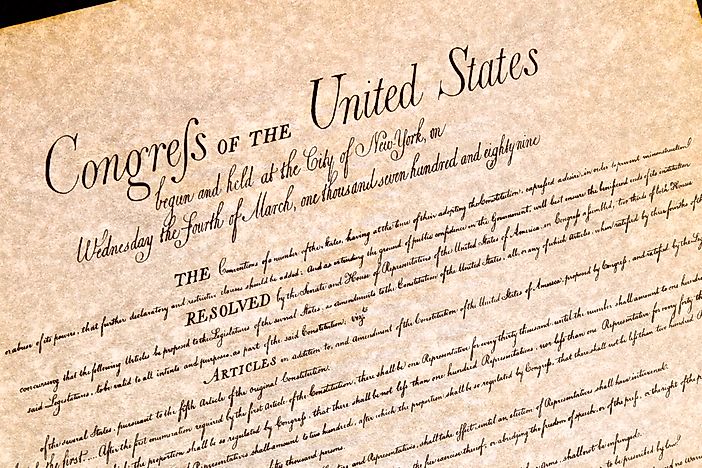 Congreſs OF THE United States
begun and held at the City of New-York, on
Wednesday the Fourth of March, one thousand seven hundred and eighty nine
THE Conventions of a number of the States, having at the time of their adopting the Constitution, expressed a desire, in order to prevent misconstruction
or abuse of its powers, that further declaratory and restrictive clauses should be added: And as extending the ground of public confidence in the Government, will best ensure the beneficent ends of its institution
RESOLVED by the Senate and House of Representatives of the United States of America, in Congreſs aſsembled, two thirds of both Houses
concurring that the following Articles be proposed to the Legislatures of the several States, as amendments to the Constitution of the United States, all, or any of which Articles, when ratified by three fourths of the
said Legislatures, to be valid to all intents and purposes, as part of the said Constitution; vizt
ARTICLES in addition to, and Amendment of the Constitution of the United States of America, proposed by Congreſs, and ratified by the Leg
of the several States, pursuant to the fifth Article of the original Constitution.
the first.... After the first enumeration required by the first Article of the Constitution, there shall be one Representative for every thirty thousand, until the number shall amount to one hundre
the proportion shall be so regulated by Congreſs, that there shall be not leſs than one hundred Representatives, nor leſs than one Representative for every forty th
Representatives shall amount to two hundred, after which the proportion shall be so regulated by Congreſs, that there shall not be leſs than two hundred
fifty thousand persons.
and Representatives, shall take effect, until an election of Representatives shall have intervened.
the free exercise thereof; or abridging the freedom of speech, or of the preſs, or the right of the p
arms, shall not be infringed.
to be prescribed by law